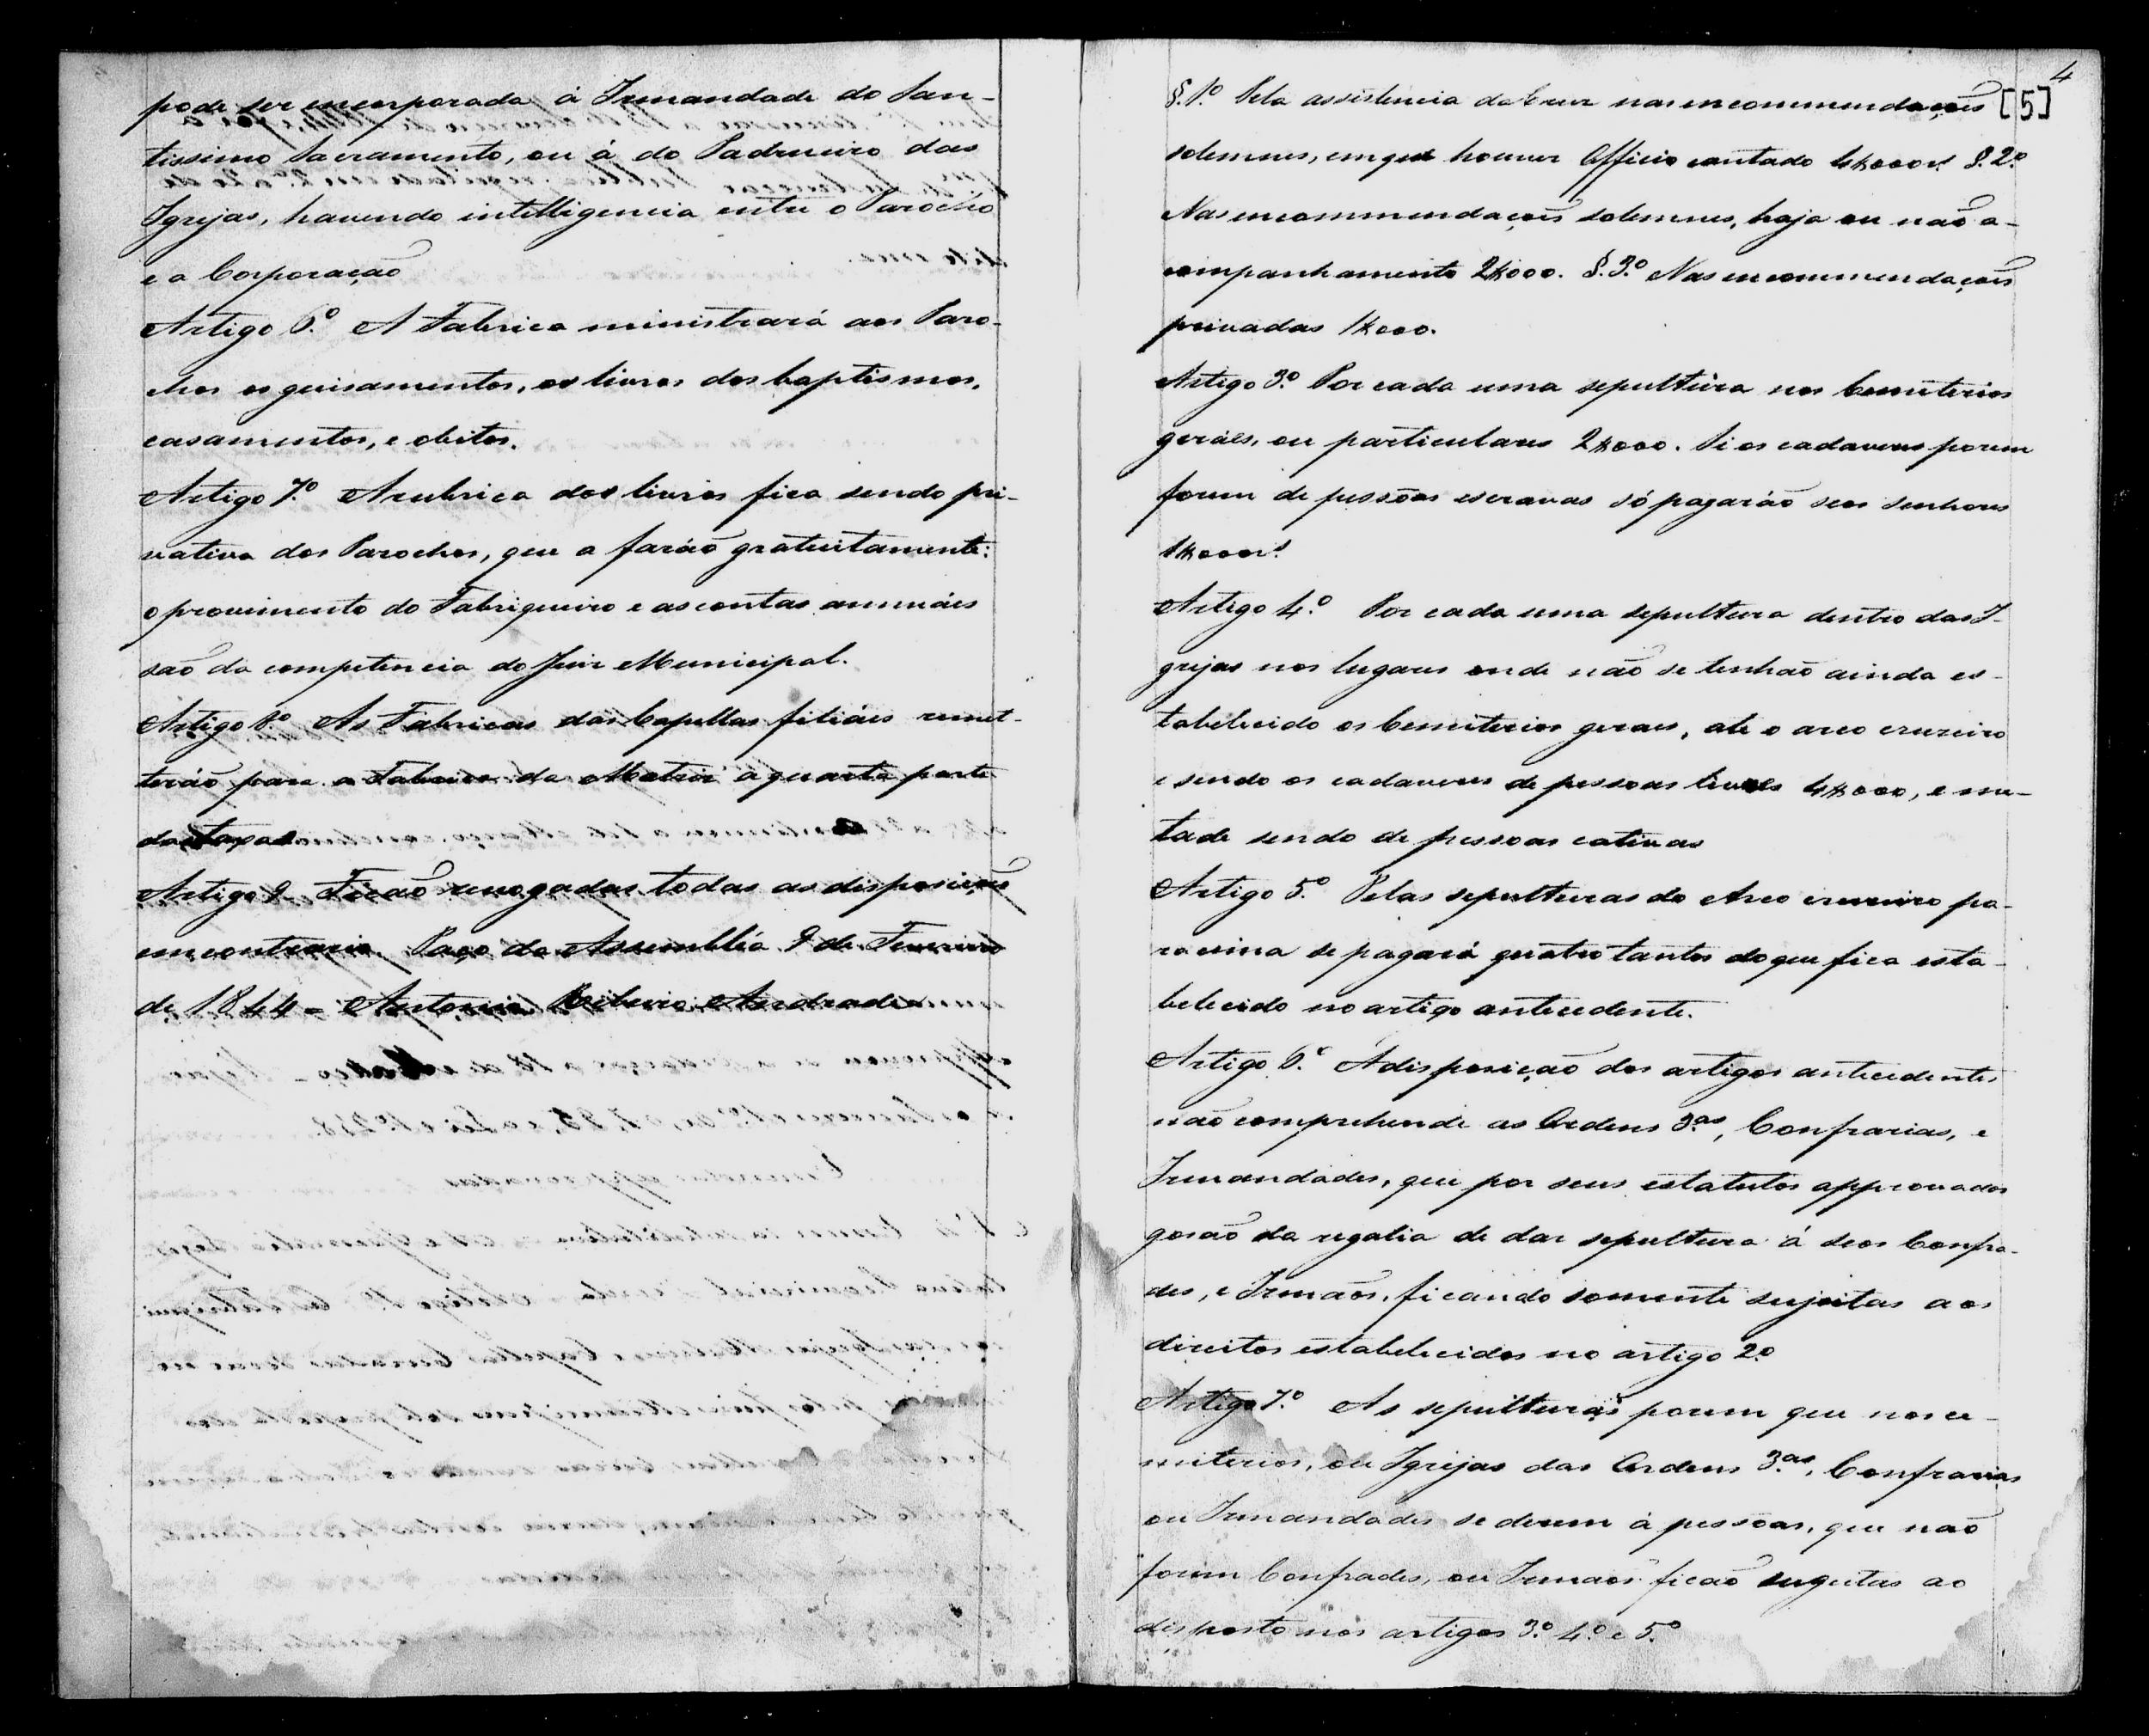 pode ser encorporada á Irmandade do San-
tissimo Sacramento, ou á do Padrueiro das
Igrejas, havendo intelligencia entre o Parocho
e a Corporação
Artigo 6.º A Fabrica ministrará aos Paro-
chos os guisamentos, os livros dos baptismos,
casamentos, e obitos.
Artigo 7.º A rubrica dos livros fica sendo pri-
vativa dos Parochos, que a farão gratuitamente:
o provimento do Fabriqueiro e as contas annuáes
são da competencia do Juiz Municipal.
Artigo 8.º As Fabricas das Capellas filiáes remet-
terão para a Fabrica da Matriz a quarta parte
das taxas
Artigo 9 Ficão revogadas todas as disposições
em contrario. Paço da Assembléa 9 de Fevereiro
de 1844 = Antonio Ribeiro Andrade =
4
[5]
§. 1.º Pela assistencia da Cruz nas encommendações
solemnes, em que houver Officio cantado 4$000 rs. §. 2.º
Nas encommendações solemnes, haja ou não a-
companhamento 2$000. §. 3.º Nas encommendações
privadas 1$000.
Artigo 3.º Por cada uma sepultura nos Cemiterios
geráes, ou particulares 2$000. Si os cadaveres porem
forem de pessôas escravas só pagaráõ seos senhores
1$000 rs.
Artigo 4.º Por cada uma sepultura dentro das I-
grejas nos lugares onde não se tenhão ainda es-
tabelecido os Cemiterios geraes, até o arco cruzeiro
e sendo os cadaveres de pessoas livres 4$000, e me-
tade sendo de pessoas cativas
Artigo 5.º Pelas sepulturas do Arco cruzeiro pa-
ra cima se pagará quatro tantos do que fica esta-
belecido no artigo antecedente.
Artigo 6.º A disposição dos artigos antecedentes
não comprehende as Ordens 3.as, Confrarias, e
Irmandades, que por seus estatutos approvados
gosão da regalia de dar sepultura á seos Confra-
des, e Irmãos, ficando somente sujeitas aos
direitos estabelecidos no artigo 2.º
Artigo 7.º As sepulturas porem que nos ce-
miterios, ou Igrejas das Ordens 3.as, Confrarias
ou Irmandades se derem á pessoas, que não
forem Confrades, ou Irmãos ficão sugeitas ao
disposto nos artigos 3.º 4.º e 5.º